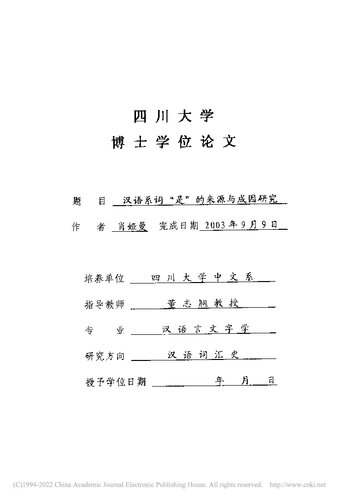 四川大学
博士学位论文
题 目 汉语系词“是”的来源与成因研究
作 者 肖娅曼 完成日期 2003年9月9日
培养单位 四川大学中文系
指导教师 董志翘教授
专 业 汉语言文字学
研究方向 汉语词汇史
授予学位日期 年 月 日
(C)1994-2022 China Academic Journal Electronic Publishing House. All rights reserved. http://www.cnki.net